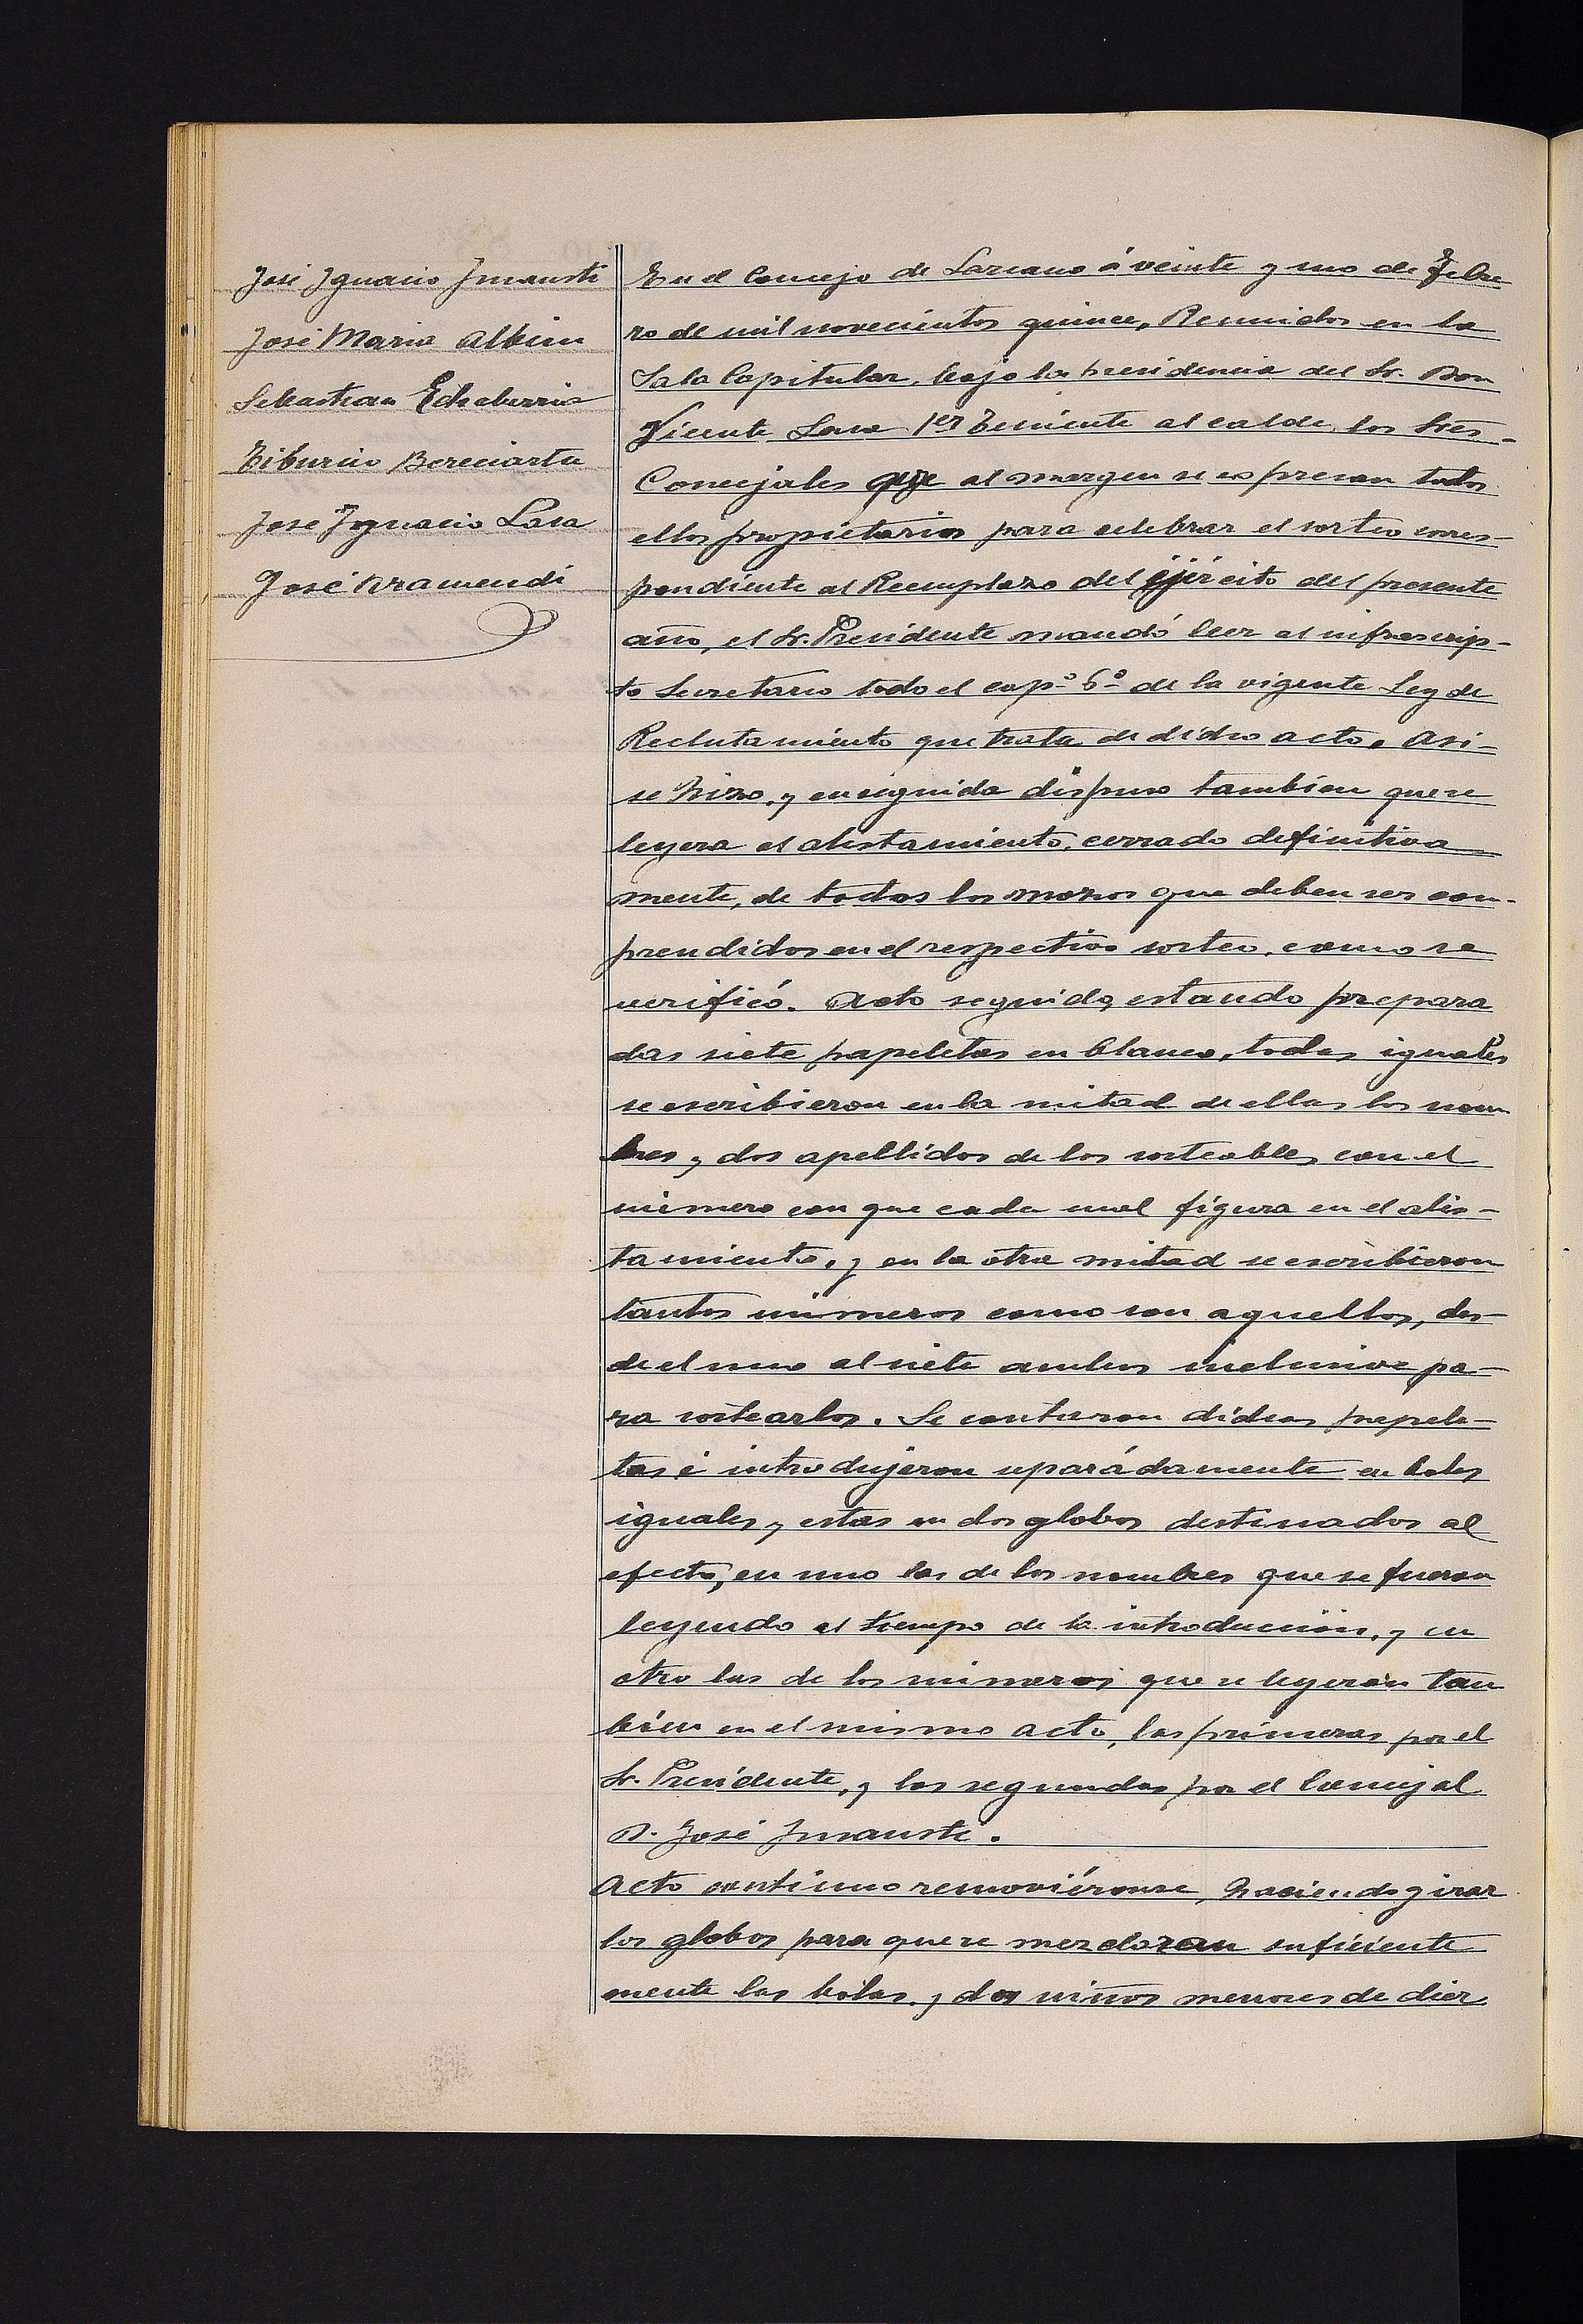 José Ygnacio Ymausti
José Maria Albisu
Sebastian Echeberria
Tiburcio Bereciartu
José Ygnacio Lasa
José Aramendi
En el Concejo de Lazcano á veinte y uno de Febre
ro de mil novecientos quince, Reunidos en la
Sala Capitular, bajo la presidencia del Sr. Don
Vicente Lasa 1er Teniente alcalde, los Sres-
Concejales que al margen se espresan todos
ellos propietarios para celebrar el sorteo corres-
pondiente al Reemplazo del ejército del presente
año, el Sr. Presidente mandó leer al infrascrip-
to Secretario todo el capº 6º de la vigente Ley de
Reclutamiento que trata de dicho acto. Asi-
se hizo, y enseguida dispuso tambien que se
leyera el alistamiento, cerrado definitiva
mente, de todos los mozos que deben ser com-
prendidos en el respectivo sorteo, como se
verificó. Acto seguido, estando prepara
das siete papeletas en blanco, todas iguales
se escribieron en la mitad de ellas los nom
bres y dos apellidos de los sorteables con el
número con que cada cual figura en el alis-
tamiento, y en la otra mitad se escribieron
tantos números como son aquellos, des-
de el uno al siete ambos inclusive pa-
ra sortearlos. Se contaron dichas papele-
tas é introdujeron separádamente en bolas
iguales y estas en dos globos destinados al
efecto, en uno las de los nombres que se fueron
leyendo al tiempo de la introducción, y en
otro las de los números que se leyeron tam
bién en el mismo acto, las primeras por el
Sr. Presidente, y las segundas por el Concejal
D. José Ymausti.
Acto continuo removiéronse, haciendo girar
los globos para que se mezclaran suficiente
mente las bolas, y dos niños menores de diez